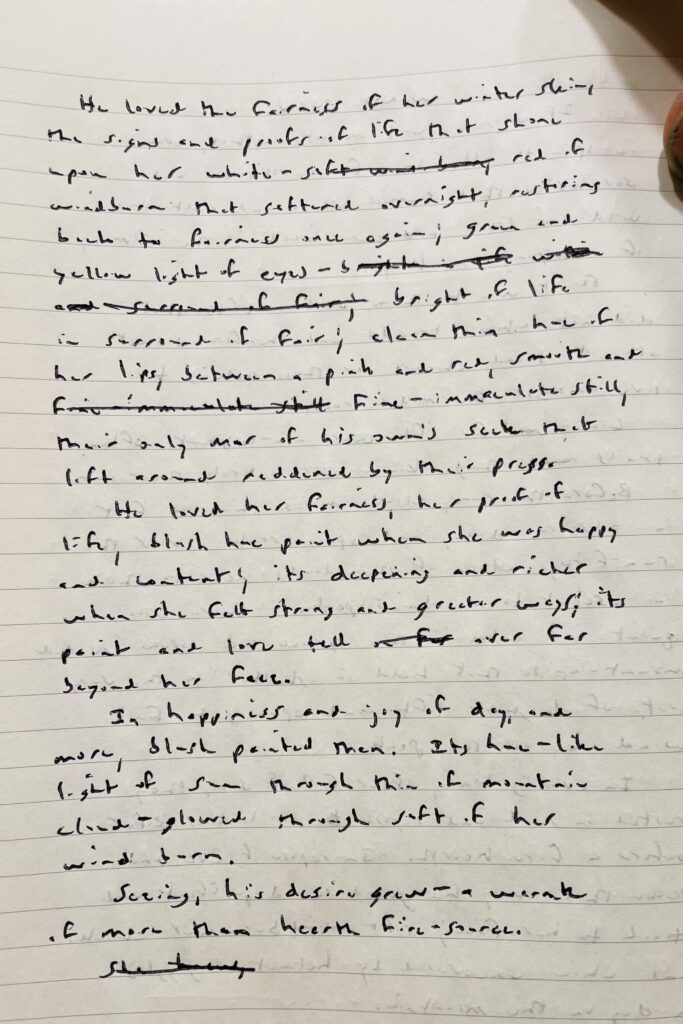 He loved the fairness of her winter skin,
the signs and proofs of life that shone
upon her white - soft wind burn, red of
windburn that softened overnight, restoring
back to fairness once again; green and
yellow light of eyes - bright in life within
and surround of fair; bright of life
in surround of fair; clean thin hue of
her lips, between a pink and red, smooth and
fine - immaculate still fine - immaculate still,
their only mar of his own's seek that
left around reddened by their press.
He loved her fairness, her proof of
life, blush hue paint when she was happy
and content; its deepening and richer
when she felt strong and greater ways; its
paint and love tell over far
beyond her face.
In happiness and joy of day, and
more, blush painted then. Its hue - like
light of sun through thin of mountain
cloud - glowed through soft of her
wind burn.
Seeing, his desire grew - a warmth
of more than hearth fire - source.
She